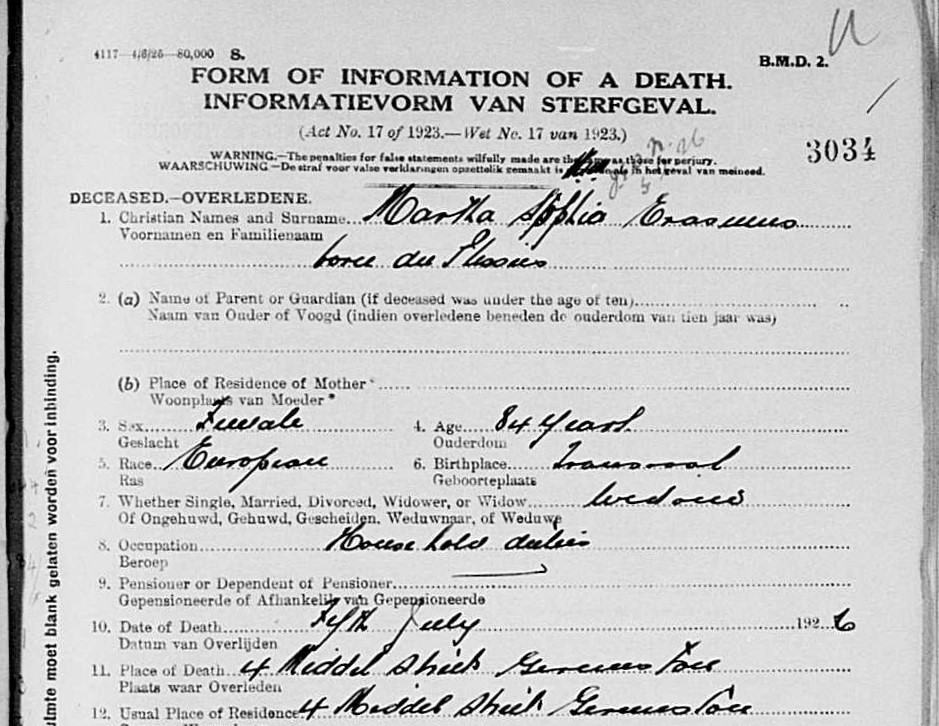 4117—4/6/25—80,000 S.
B.M.D. 2.
FORM OF INFORMATION OF A DEATH.
INFORMATIEVORM VAN STERFGEVAL.
(Act No. 17 of 1923.—Wet No. 17 van 1923.)
3034
WARNING.—The penalties for false statements wilfully made are the same as those for perjury.
WAARSCHUWING—De straf voor valse verklaringen opzettelik gemaakt is in het geval van meineed.
DECEASED.—OVERLEDENE.
1. Christian Names and Surname Martha Sophia Erasmus
Voornamen en Familienaam
born du Plessis
2. (a) Name of Parent or Guardian (if deceased was under the age of ten)
Naam van Ouder of Voogd (indien overledene beneden de ouderdom van tien jaar was)
(b) Place of Residence of Mother*
Woonplaats van Moeder*
3. Sex Female 4. Age 84 Years
Geslacht Ouderdom
5. Race European 6. Birthplace Transvaal
Ras Geboorteplaats
7. Whether Single, Married, Divorced, Widower, or Widow Widow
Of Ongehuwd, Gehuwd, Gescheiden, Weduwnaar, of Weduwe
8. Occupation Household duties
Beroep
9. Pensioner or Dependent of Pensioner
Gepensioneerde of Afhankelik van Gepensioneerde
10. Date of Death Fifth July 1926
Datum van Overlijden
11. Place of Death 4 Middel Street Germiston
Plaats waar Overleden
12. Usual Place of Residence 4 Middel Street Germiston
ulmte moet blank gelaten worden voor inbinding.